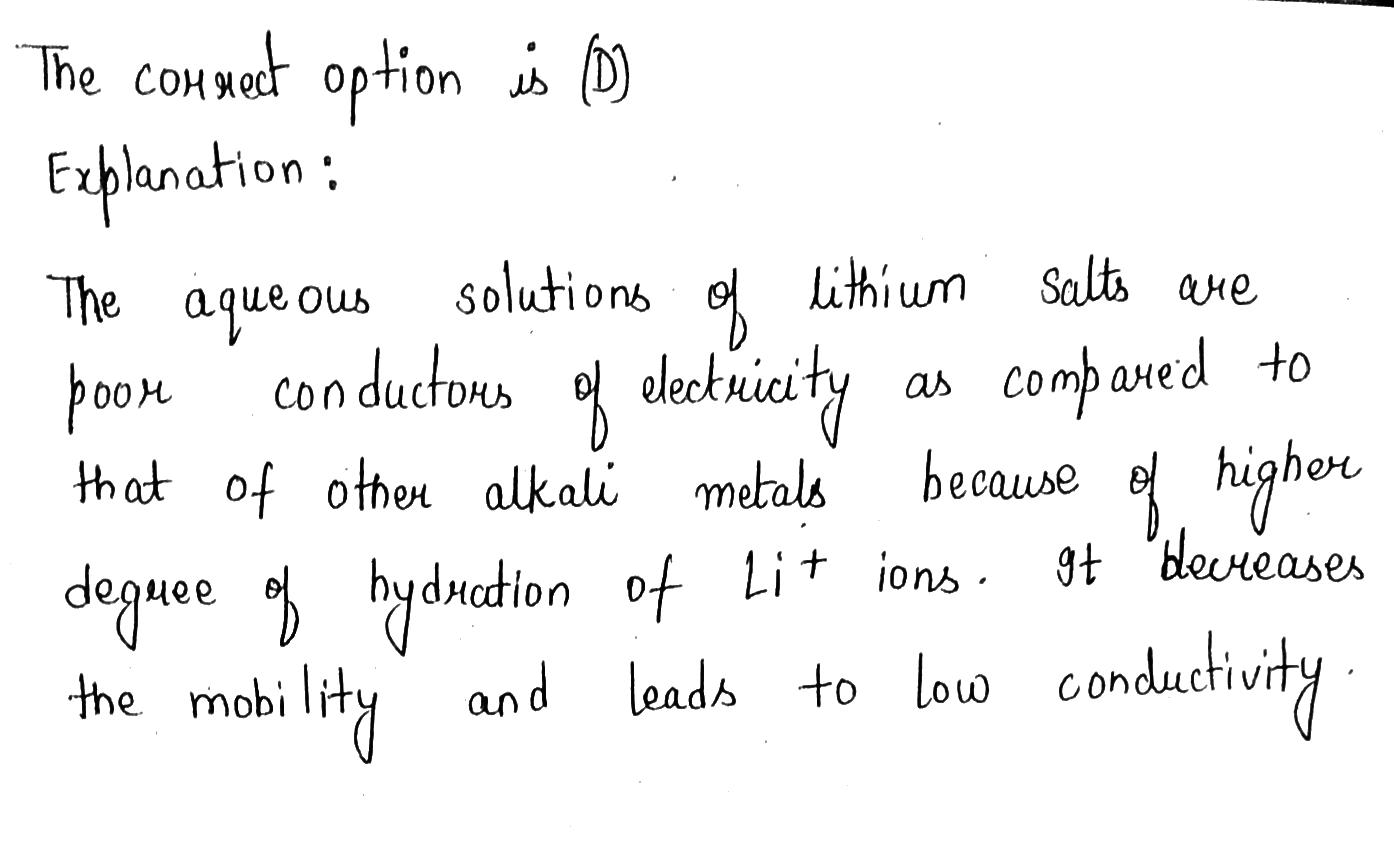 The correct option is (D)
Explanation:
The aqueous solutions of lithium salts are
poor conductors of electricity as compared to
that of other alkali metals because of higher
degree of hydration of Li+ ions. It decreases
the mobility and leads to low conductivity.